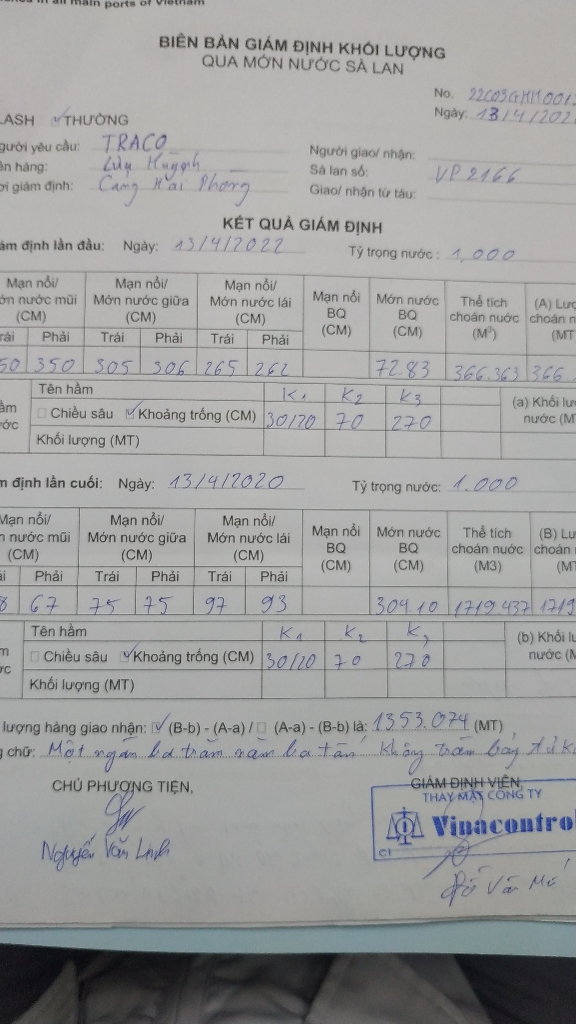 in all main ports of Vietnam
BIÊN BẢN GIÁM ĐỊNH KHỐI LƯỢNG
QUA MỚN NƯỚC SÀ LAN
No. 22G03GHM001
Ngày: 13/4/202
LASH ☑ THƯỜNG
gười yêu cầu: TRACO
Người giao/ nhận:
n hàng: Lưu Huỳnh
Sà lan số: VP 2166
i giám định: Cảng Hải Phòng
Giao/ nhận từ tàu:
KẾT QUẢ GIÁM ĐỊNH
ám định lần đầu: Ngày: 13/4/2022 Tỷ trọng nước: 1,000
Mạn nổi/ Mạn nổi/ Mạn nổi/ Mạn nổi Mớn nước Thể tích (A) Lượ
ớn nước mũi Mớn nước giữa Mớn nước lái BQ BQ choán nước choán n
(CM) (CM) (CM) (CM) (CM) (M³) (MT
rái Phải Trái Phải Trái Phải
50 350 305 306 265 262 72.83 366.363 366.
Tên hầm K1 K2 K3
ầm ☐ Chiều sâu ☑ Khoảng trống (CM) 30/20 70 270 (a) Khối lư
ước Khối lượng (MT) nước (M
m định lần cuối: Ngày: 13/4/2020 Tỷ trọng nước: 1.000
Mạn nổi/ Mạn nổi/ Mạn nổi/ Mạn nổi Mớn nước Thể tích (B) Lượ
n nước mũi Mớn nước giữa Mớn nước lái BQ BQ choán nước choán n
(CM) (CM) (CM) (CM) (CM) (M3) (MT
ái Phải Trái Phải Trái Phải
8 67 75 75 97 93 304.10 1719.437 1719
Tên hầm K1 K2 K3
m ☐ Chiều sâu ☑ Khoảng trống (CM) 30/20 70 270 (b) Khối lư
ớc Khối lượng (MT) nước (M
lượng hàng giao nhận: ☑ (B-b) - (A-a) / ☐ (A-a) - (B-b) là: 1353.074 (MT)
g chữ: Một ngàn ba trăm năm ba tấn không trăm bảy tư k
CHỦ PHƯƠNG TIỆN,
GIÁM ĐỊNH VIÊN,
THAY MẶT CÔNG TY
Vinacontro
C1
Nguyễn Văn Linh
Đỗ Văn